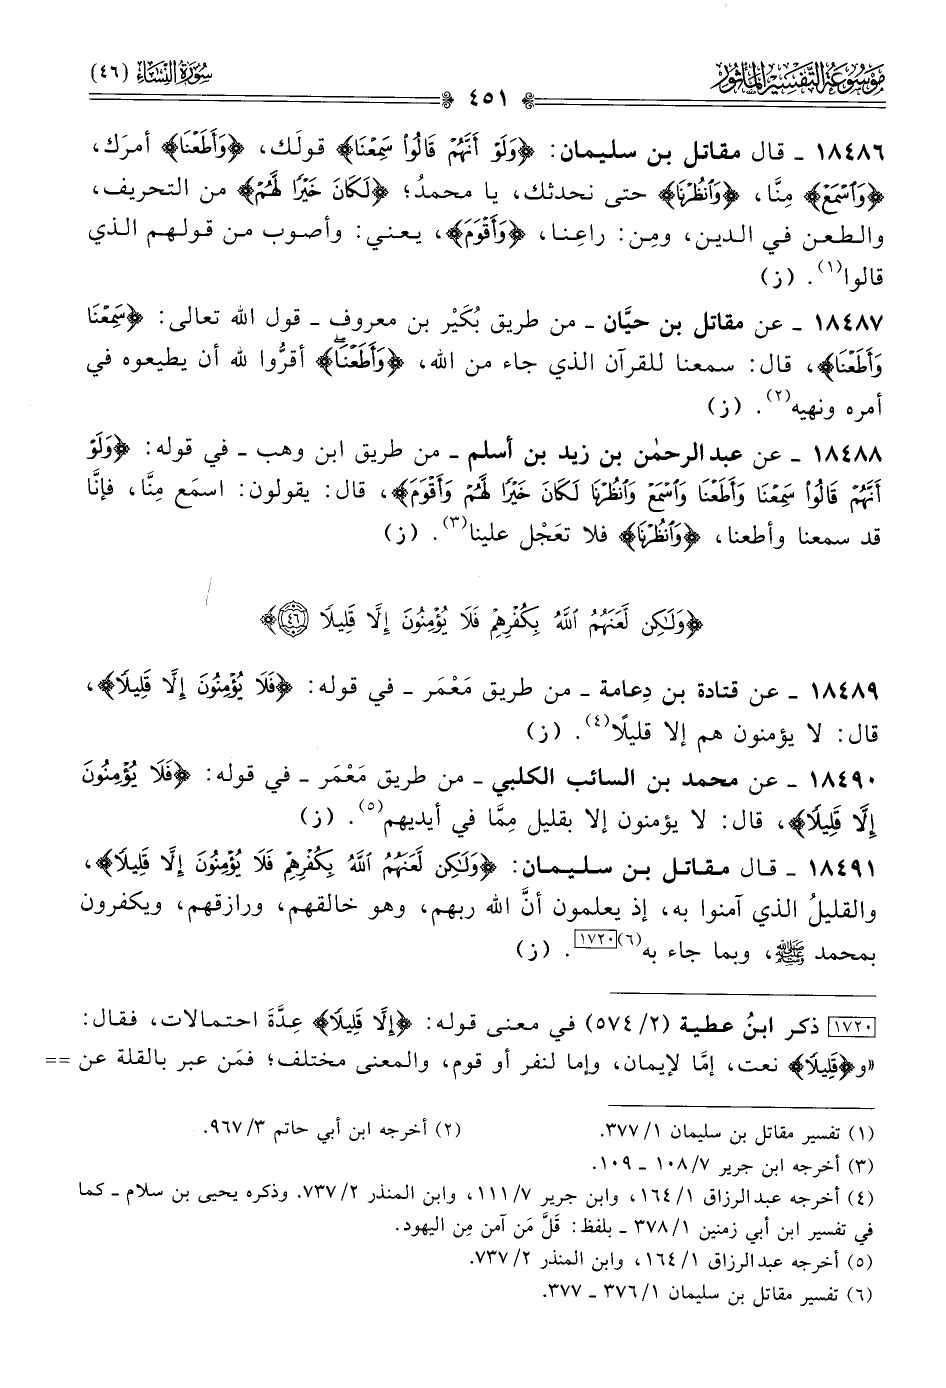 موسوعة التفسير المأثور
سورة النساء (٤٦)
٤٥١
١٨٤٨٦ ـ قال مقاتل بن سليمان: ﴿وَلَوْ أَنَّهُمْ قَالُوا۟ سَمِعْنَا﴾ قولَك، ﴿وَأَطَعْنَا﴾ أمرَك،
﴿وَٱسْمَعْ﴾ مِنَّا، ﴿وَٱنظُرْنَا﴾ حتى نحدثك، يا محمدُ؛ ﴿لَكَانَ خَيْرًا لَّهُمْ﴾ من التحريف،
والطعن في الدين، ومِن: راعِنا، ﴿وَأَقْوَمَ﴾، يعني: وأصوب من قولهم الذي
قالوا(١). (ز)
١٨٤٨٧ ـ عن مقاتل بن حيَّان ـ من طريق بُكَيْر بن معروف ـ قول الله تعالى: ﴿سَمِعْنَا
وَأَطَعْنَا﴾، قال: سمعنا للقرآن الذي جاء من الله، ﴿وَأَطَعْنَا﴾ أقرُّوا لله أن يطيعوه في
أمره ونهيه(٢). (ز)
١٨٤٨٨ ـ عن عبدالرحمٰن بن زيد بن أسلم ـ من طريق ابن وهب ـ في قوله: ﴿وَلَوْ
أَنَّهُمْ قَالُوا۟ سَمِعْنَا وَأَطَعْنَا وَٱسْمَعْ وَٱنظُرْنَا لَكَانَ خَيْرًا لَّهُمْ وَأَقْوَمَ﴾، قال: يقولون: اسمَع مِنَّا، فإنَّا
قد سمعنا وأطعنا، ﴿وَٱنظُرْنَا﴾ فلا تعَجْل علينا(٣). (ز)
﴿وَلَـٰكِن لَّعَنَهُمُ ٱللَّهُ بِكُفْرِهِمْ فَلَا يُؤْمِنُونَ إِلَّا قَلِيلًا ٤٦﴾
١٨٤٨٩ ـ عن قتادة بن دِعامة ـ من طريق مَعْمَر ـ في قوله: ﴿فَلَا يُؤْمِنُونَ إِلَّا قَلِيلًا﴾،
قال: لا يؤمنون هم إلا قليلًا(٤). (ز)
١٨٤٩٠ ـ عن محمد بن السائب الكلبي ـ من طريق مَعْمَر ـ في قوله: ﴿فَلَا يُؤْمِنُونَ
إِلَّا قَلِيلًا﴾، قال: لا يؤمنون إلا بقليل مِمَّا في أيديهم(٥). (ز)
١٨٤٩١ ـ قال مقاتل بن سليمان: ﴿وَلَـٰكِن لَّعَنَهُمُ ٱللَّهُ بِكُفْرِهِمْ فَلَا يُؤْمِنُونَ إِلَّا قَلِيلًا﴾،
والقليلُ الذي آمنوا به، إذ يعلمون أنَّ الله ربهم، وهو خالقهم، ورازقهم، ويكفرون
بمحمد ﷺ، وبما جاء به(٦)[١٧٢٠]. (ز)
[١٧٢٠] ذكر ابنُ عطية (٢/ ٥٧٤) في معنى قوله: ﴿إِلَّا قَلِيلًا﴾ عِدَّةَ احتمالات، فقال:
«و﴿قَلِيلًا﴾ نعت، إمَّا لإيمان، وإما لنفر أو قوم، والمعنى مختلف؛ فمَن عبر بالقلة عن ==
(١) تفسير مقاتل بن سليمان ١/ ٣٧٧. (٢) أخرجه ابن أبي حاتم ٣/ ٩٦٧.
(٣) أخرجه ابن جرير ٧/ ١٠٨ ـ ١٠٩.
(٤) أخرجه عبدالرزاق ١/ ١٦٤، وابن جرير ٧/ ١١١، وابن المنذر ٢/ ٧٣٧. وذكره يحيى بن سلام ـ كما
في تفسير ابن أبي زمنين ١/ ٣٧٨ ـ بلفظ: قَلَّ مَن آمن مِن اليهود.
(٥) أخرجه عبدالرزاق ١/ ١٦٤، وابن المنذر ٢/ ٧٣٧.
(٦) تفسير مقاتل بن سليمان ١/ ٣٧٦ ـ ٣٧٧.